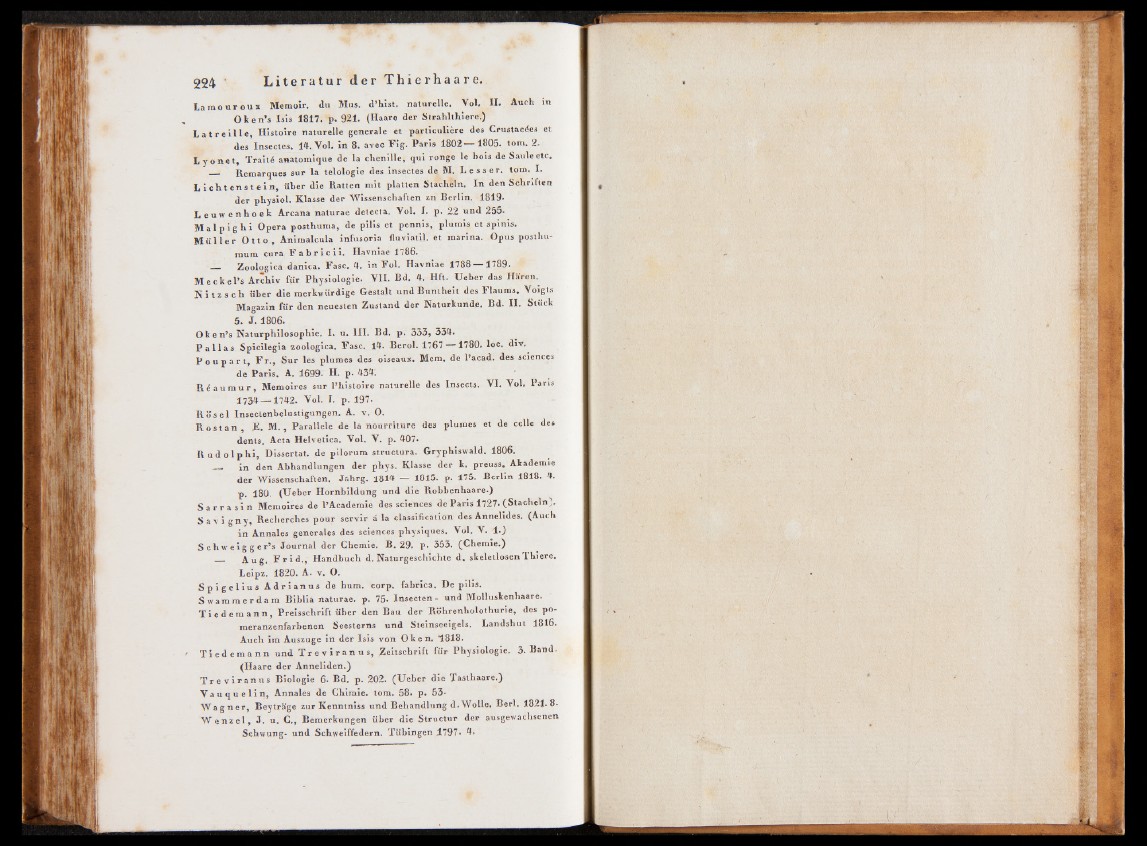 224 Literatur der Thierhaare.
Lamouroux Memoir. du Mus. d'hist. naturelle. Vol. II. Auch in
Oken's Isis 1817. p. 921. (Haare der Strahlthiere.)
Latreille, Histoire naturelle generale et particulière des Crustacées et
des Insectes. 14. Vol. in 8. avec Fig. Paris 1802—1805. tom. 2.
Lyonet, Traité anatomique de la chenille, qui ronge le bois de Saule etc.
— Remarques sur la telologie des insectes de M. Lesser. tom. I.
Lichtenstein, über die Ratten mit platten Stacheln. In den Schriften
der physiol. Klasse der Wissenschaften zn Berlin. 1819.
Leuwenhoek Arcana naturae detecta. Vol. I. p. 22 und 255.
Malpighi Opera posthuma, de pilis et pennis, plumis et spinis.
Müller Otto, Animalcula infusoria fluviatil. et marina. Opus posthu-
mum cura Fabricii. Havniae 1786.
— Zoologica danica. Fasc. 4. in Fol. Havniae 1788—1789.
Meckel's Archiv für Physiologie. VII. Bd. 4. Hft. Ueber das Hären.
Nitzsch über die merkwürdige Gestalt und Buntheit des Flaums. Voigts
Magazin für den neuesten Zustand der Naturkunde. Bd. II. Stück
5. J. 1806.
Oken's Naturphilosophie. I. u. III. Bd. p. 333, 334.
Pallas Spicilegia zoologica. Fasc. 14. Berol. 1767—1780. loc. div.
Poupart, Fr., Sur les plumes des oiseaux. Mem. de l'acad. des sciences
de Paris. A. 1699. II. p. 434.
Réaumur, Memoires sur l'histoire naturelle des Insects. VI. Vol. Paris
1734—1742. Vol. I. p. 197.
Rösel Insectenbelustigungen. A. v. O.
Rostan, E. M., Parallele de la nourriture des plumes et de celle des
dents. Acta Helvetica. Vol. V. p. 407.
Rudolphi, Dissertat. de pilorum structura. Gryphiswald. 1806.
— in den Abhandlungen der phys. Klasse der k. preuss. Akademie
der Wissenschaften. Jahrg. 1814 — 1815. p. 175. Berlin 1818. 4.
p. 180. (Ueber Hornbildung und die Robbenhaare.)
Sarrasin Memoires de l'Academie des sciences de Paris 1727. (Stacheln).
Savigny, Recherches pour servir á la classification des Annelides. (Auch
in Annales generales des sciences physiques. Vol. V. 1.)
Schweigger's Journal der Chemie. B. 29. p. 353. (Chemie.)
— Aug. Frid., Handbuch d. Naturgeschichte d. skeletlosen Thiere.
Leipz. 1820. A. v. O.
Spigelius Adrianus de hum. corp. fabrica. De pilis.
Swammerdam Biblia naturae. p. 75. Insecten- und Molluskenhaare.
Tiedemann, Preisschrift über den Bau der Röhrenholothurie, des po-
meranzenfarbenen Seesterns und Steinseeigels. Landshut 1816.
Auch im Auszuge in der Isis von Oken. 1818.
Tiedemann und Treviranus, Zeitschrift für Physiologie. 3. Band.
(Haare der Anneliden.)
Treviranus Biologie 6. Bd. p. 202. (Ueber die Tasthaare.)
Vauquelin, Annales de Chimie. tom. 58. p. 53.
Wagner, Beyträge zur Kenntniss und Behandlung d. Wolle. Berl. 1821. 8.
Wenzel, J. u. C., Bemerkungen über die Structur der ausgewachsenen
Schwung- und Schweiffedern. Tübingen 1797. 4.